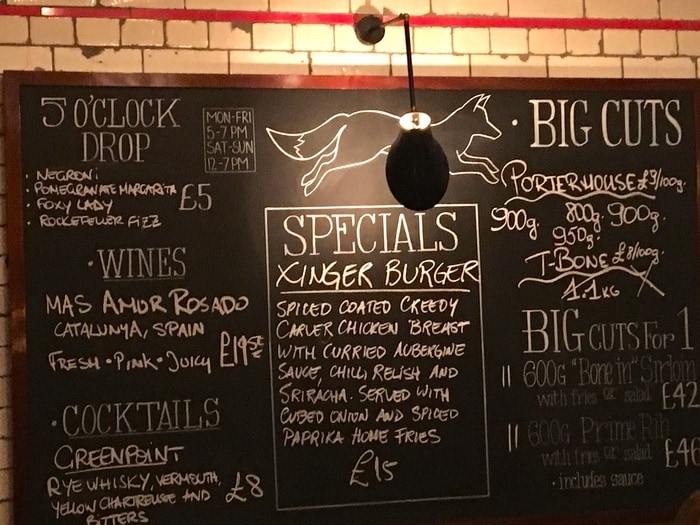 5 O'CLOCK
DROP
MON-FRI
5-7 PM
SAT-SUN
12-7 PM
• NEGRONI
• POMEGRANATE MARGARITA
• FOXY LADY
• ROCKEFELLER FIZZ
£5
• WINES
MAS AMOR ROSADO
CATALUNYA, SPAIN
FRESH • PINK • JUICY
£19.50
• COCKTAILS
GREENPOINT
RYE WHISKY, VERMOUTH,
YELLOW CHARTREUSE AND
BITTERS
£8
SPECIALS
XINGER BURGER
SPICED COATED CREEDY
CARVER CHICKEN BREAST
WITH CURRIED AUBERGINE
SAUCE, CHILLI RELISH AND
SRIRACHA. SERVED WITH
CUBED ONION AND SPICED
PAPRIKA HOME FRIES
£15
• BIG CUTS
PORTERHOUSE £9/100g.
900g. 800g. 900g.
950g.
T-BONE £8/100g.
1.1KG
BIG CUTS FOR 1
600G "Bone in" Sirloin
with fries or salad £42
600G Prime Rib
with fries or salad £46
• includes sauce